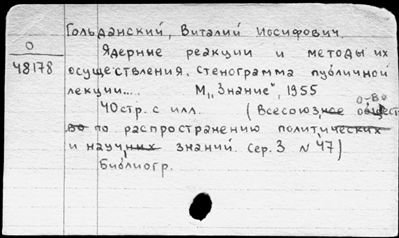 Гольданский, Виталий Иосифович.
О
48178
Ядерные реакции и методы их
осуществления. Стенограмма публичной
лекции.... М, „Знание", 1955
40стр. с илл. (Всесоюзное о-во
по распространению политических
и научных знаний. Сер. 3 № 47)
Библиогр.